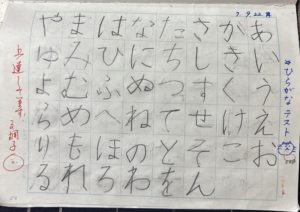 7.9.22
ひらがなテスト
あいうえお
かきくけこ
さしすせそん
たちつてとを
なにぬねのわ
はひふへほろ
まみむめもれ
やゆよらりる